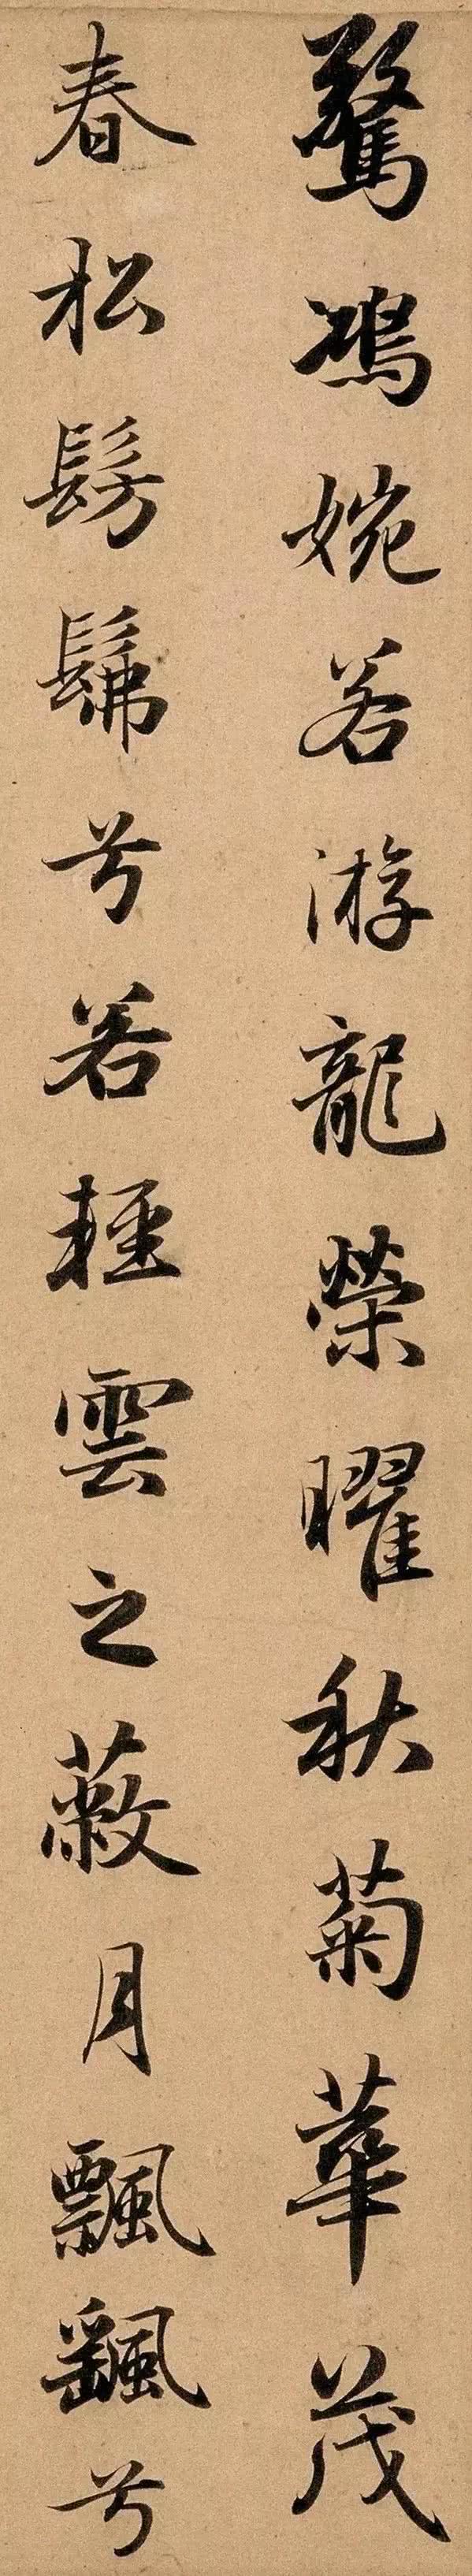 驚鴻婉若游龍榮曜秋菊華茂
春松髣髴兮若輕雲之蔽月飄颻兮